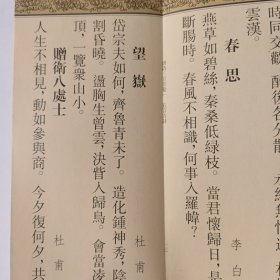 時同交歡，醉後各分散
雲漢。
春思
李白
燕草如碧絲，秦桑低綠枝。當君懷歸日，是
斷腸時。春風不相識，何事入羅幃？
望嶽
杜甫
岱宗夫如何，齊魯青未了。造化鍾神秀，陰
割昏曉。盪胸生曾雲，決眥入歸鳥。會當凌
頂，一覽衆山小。
贈衛八處士
杜甫
人生不相見，動如參與商。今夕復何夕，共